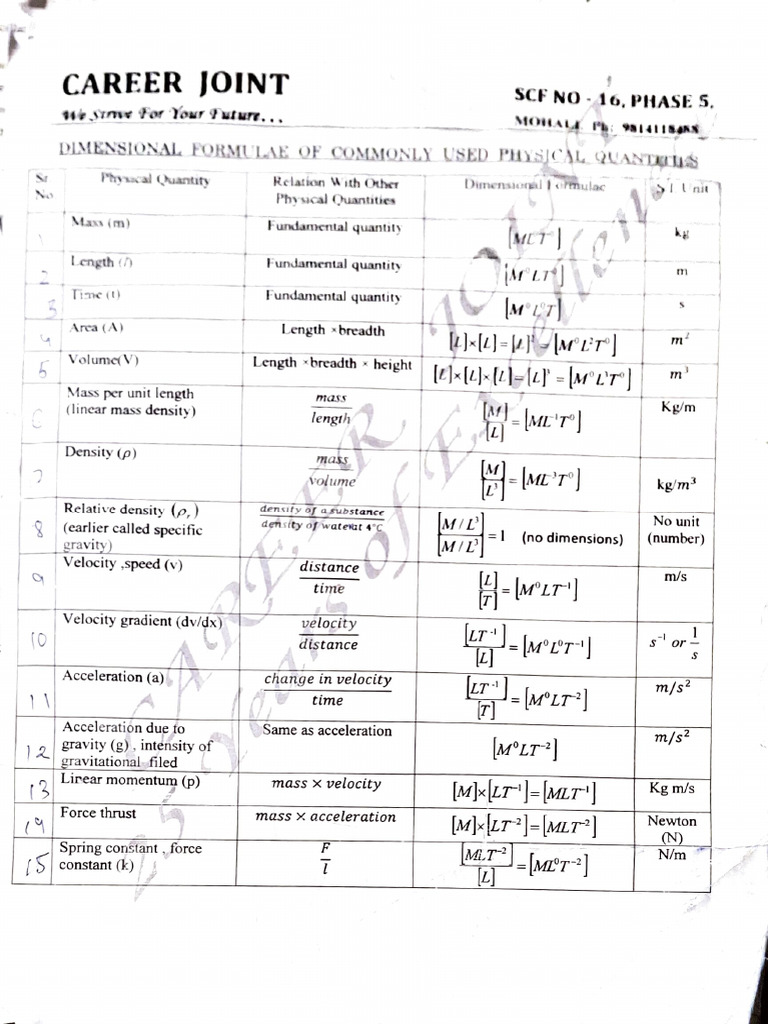 CAREER JOINT
SCF NO - 16, PHASE 5,
We Strive For Your Future...
MOHALI Ph: 9814118488
DIMENSIONAL FORMULAE OF COMMONLY USED PHYSICAL QUANTITIES
Sr. No | Physical Quantity | Relation With Other Physical Quantities | Dimensional Formulae | S I Unit
1 | Mass (m) | Fundamental quantity | [ML°T°] | kg
2 | Length (l) | Fundamental quantity | [M°LT°] | m
3 | Time (t) | Fundamental quantity | [M°L°T] | s
4 | Area (A) | Length ×breadth | [L]×[L]=[L]²=[M⁰L²T⁰] | m²
5 | Volume(V) | Length ×breadth × height | [L]×[L]×[L]=[L]³=[M⁰L³T⁰] | m³
6 | Mass per unit length (linear mass density) | mass/length | [M]/[L]=[ML⁻¹T⁰] | Kg/m
7 | Density (ρ) | mass/volume | [M]/[L³]=[ML⁻³T⁰] | kg/m³
8 | Relative density (ρr) (earlier called specific gravity) | density of a substance/density of water at 4°C | [M/L³]/[M/L³]=1 (no dimensions) | No unit (number)
9 | Velocity ,speed (v) | distance/time | [L]/[T]=[M⁰LT⁻¹] | m/s
10 | Velocity gradient (dv/dx) | velocity/distance | [LT⁻¹]/[L]=[M⁰L⁰T⁻¹] | s⁻¹ or 1/s
11 | Acceleration (a) | change in velocity/time | [LT⁻¹]/[T]=[M⁰LT⁻²] | m/s²
12 | Acceleration due to gravity (g) , intensity of gravitational filed | Same as acceleration | [M⁰LT⁻²] | m/s²
13 | Linear momentum (p) | mass × velocity | [M]×[LT⁻¹]=[MLT⁻¹] | Kg m/s
14 | Force thrust | mass × acceleration | [M]×[LT⁻²]=[MLT⁻²] | Newton (N)
15 | Spring constant , force constant (k) | F/l | [MLT⁻²]/[L]=[ML⁰T⁻²] | N/m
CAREER JOINT
25 Years of Excellence